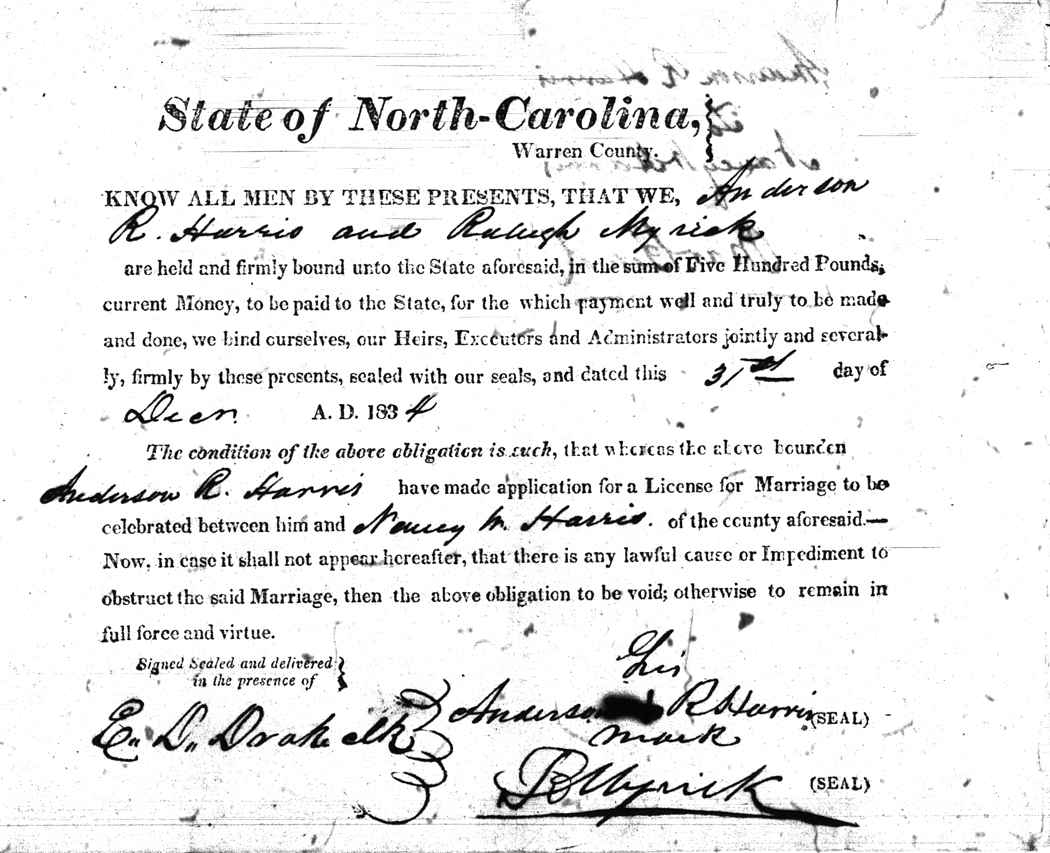 State of North-Carolina,
Warren County.
KNOW ALL MEN BY THESE PRESENTS, THAT WE, Anderson
R. Harris and Raleigh Myrick
are held and firmly bound unto the State aforesaid, in the sum of Five Hundred Pounds,
current Money, to be paid to the State, for the which payment well and truly to be made
and done, we bind ourselves, our Heirs, Executors and Administrators jointly and several-
ly, firmly by these presents, sealed with our seals, and dated this 31st day of
Decr. A. D. 1834
The condition of the above obligation is such, that whereas the above bounden
Anderson R. Harris have made application for a License for Marriage to be
celebrated between him and Nancy M. Harris. of the county aforesaid.—
Now, in case it shall not appear hereafter, that there is any lawful cause or Impediment to
obstruct the said Marriage, then the above obligation to be void; otherwise to remain in
full force and virtue.
Signed Sealed and delivered
in the presence of
his
E. D. Drake clk Anderson R Harris (SEAL)
mark
Myrick (SEAL)